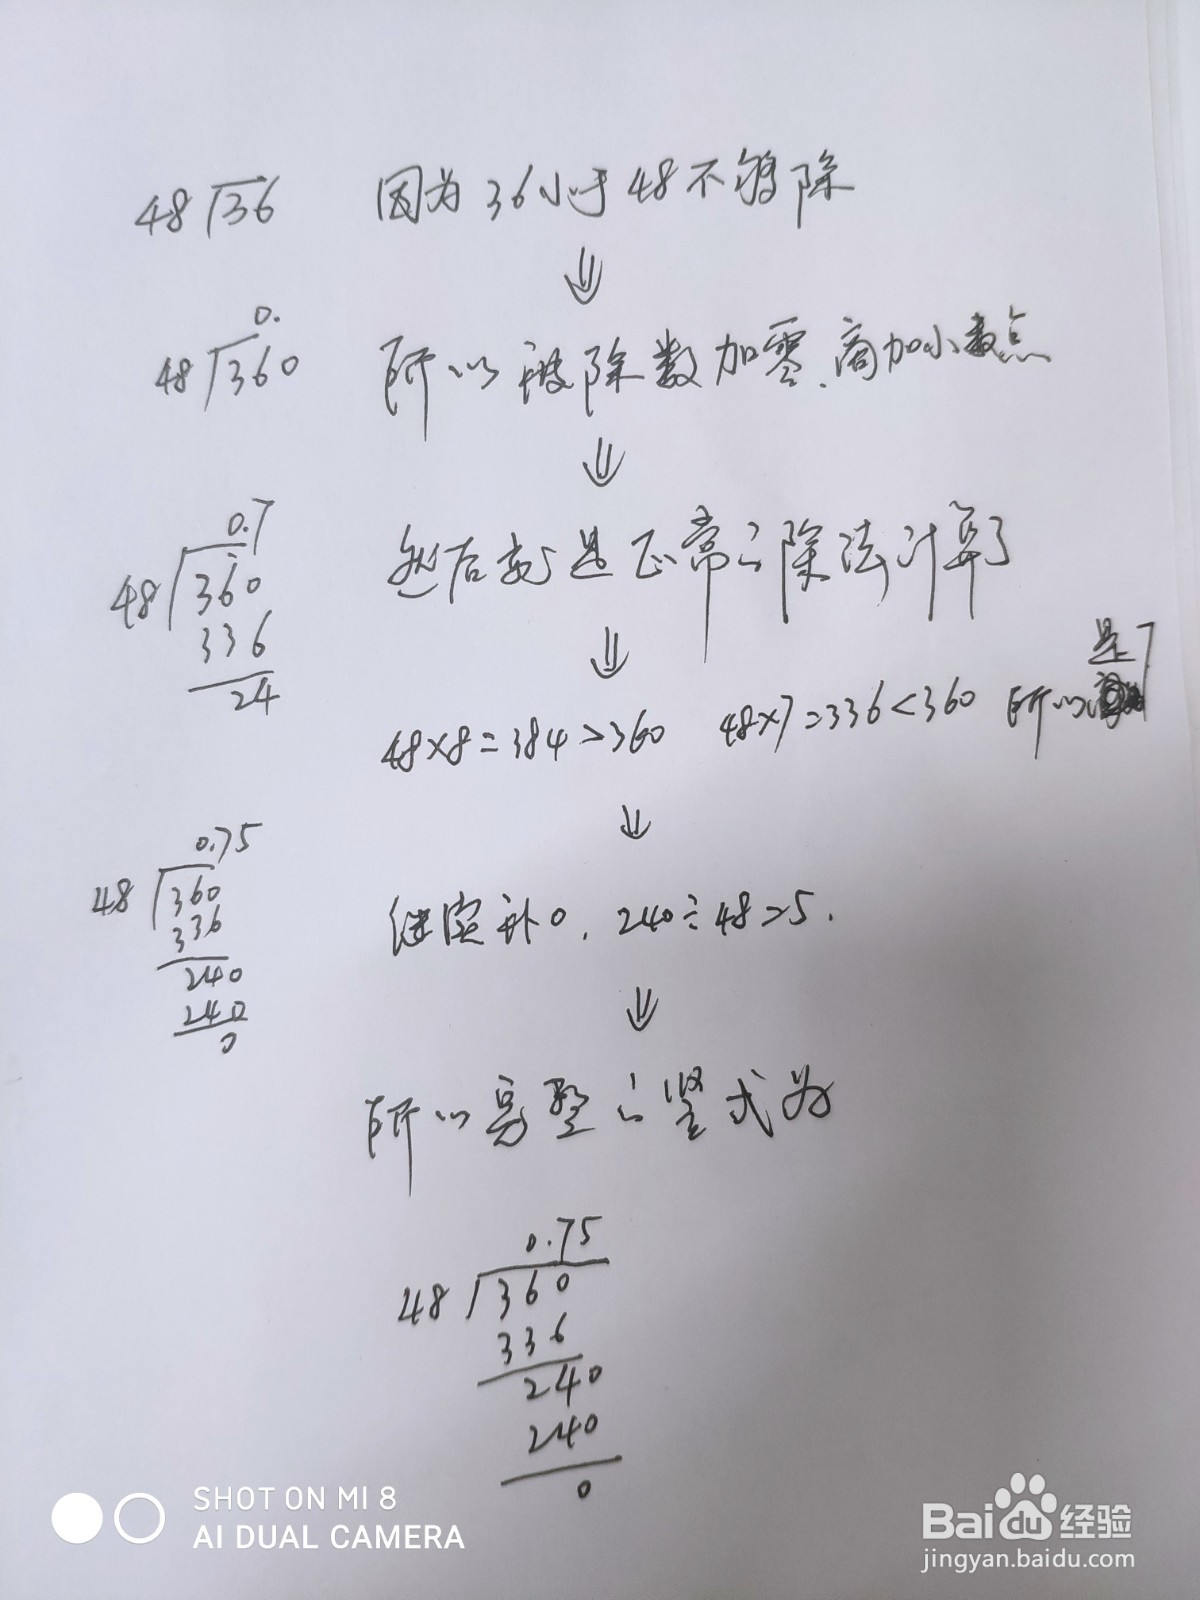 48 36 因为36小于48不够除
0.
48 360 所以被除数加零、商加小数点
0.7
48 360 然后就是正常的除法计算了
336
24
是7
48×8=384>360 48×7=336<360 所以
0.75
48 360
336 继续补0,240÷48=5.
240
240
0
所以完整的竖式为
0.75
48 360
336
240
240
0
SHOT ON MI 8
AI DUAL CAMERA
Baidu经验
jingyan.baidu.com